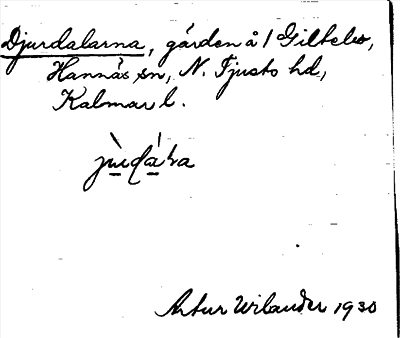 Djurdalarna, gården å 1 Giltebo,
Hannäs sn, N. Tjusts hd,
Kalmar l.
Artur Wilander 1930